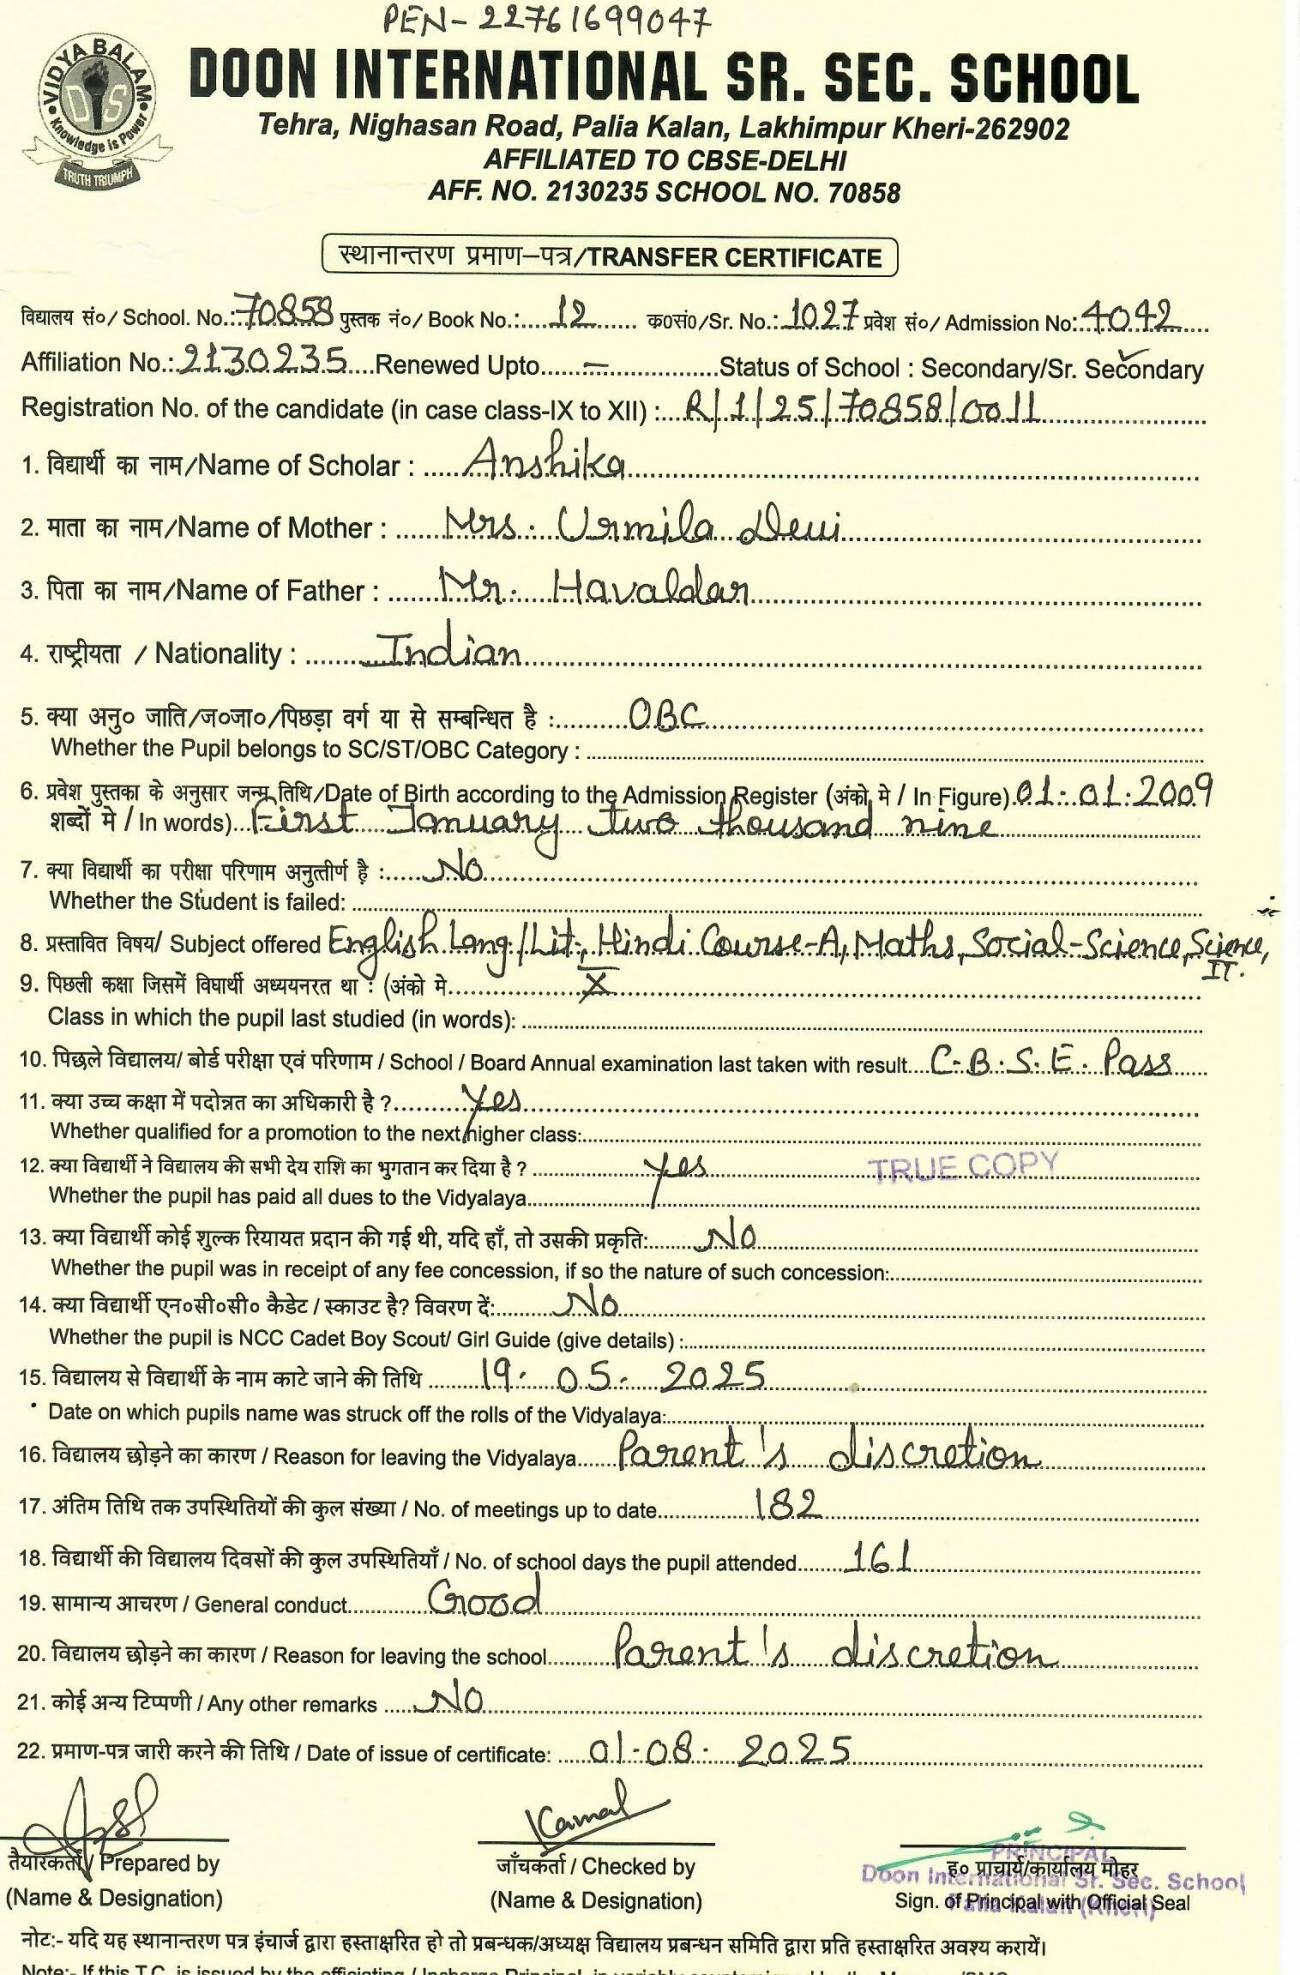 PEN-22761699047
VIDYA BALAM
DIS
Knowledge is Power
TRUTH TRIUMPH
DOON INTERNATIONAL SR. SEC. SCHOOL
Tehra, Nighasan Road, Palia Kalan, Lakhimpur Kheri-262902
AFFILIATED TO CBSE-DELHI
AFF. NO. 2130235 SCHOOL NO. 70858
स्थानान्तरण प्रमाण-पत्र/TRANSFER CERTIFICATE
विद्यालय सं०/ School. No.:70858 पुस्तक नं०/ Book No.:....12...... क०सं०/Sr. No.:1027 प्रवेश सं०/ Admission No:4042....
Affiliation No.:2130235....Renewed Upto......–..............Status of School : Secondary/Sr. Secondary
Registration No. of the candidate (in case class-IX to XII) :...R/1/25/70858/0011
1. विद्यार्थी का नाम/Name of Scholar : ..... Anshika
2. माता का नाम/Name of Mother : ...... Mrs. Urmila Devi
3. पिता का नाम/Name of Father : ...... Mr. Havaldar
4. राष्ट्रीयता / Nationality : ........ Indian
5. क्या अनु० जाति/ज०जा०/पिछड़ा वर्ग या से सम्बन्धित है :......... OBC
Whether the Pupil belongs to SC/ST/OBC Category :
6. प्रवेश पुस्तिका के अनुसार जन्म तिथि/Date of Birth according to the Admission Register (अंको मे / In Figure) 01.01.2009
शब्दों मे / In words).. First January two thousand nine
7. क्या विद्यार्थी का परीक्षा परिणाम अनुत्तीर्ण है :..... No
Whether the Student is failed:
8. प्रस्तावित विषय/ Subject offered English Lang./Lit., Hindi Course-A, Maths, Social-Science, Science,
IT.
9. पिछली कक्षा जिसमें विघार्थी अध्ययनरत था : (अंको मे............ X
Class in which the pupil last studied (in words):
10. पिछले विद्यालय/ बोर्ड परीक्षा एवं परिणाम / School / Board Annual examination last taken with result... C.B.S.E. Pass
11. क्या उच्च कक्षा में पदोन्नत का अधिकारी है ?......... Yes
Whether qualified for a promotion to the next higher class:
12. क्या विद्यार्थी ने विद्यालय की सभी देय राशि का भुगतान कर दिया है ? ............ Yes TRUE COPY
Whether the pupil has paid all dues to the Vidyalaya
13. क्या विद्यार्थी कोई शुल्क रियायत प्रदान की गई थी, यदि हाँ, तो उसकी प्रकृति:....... No
Whether the pupil was in receipt of any fee concession, if so the nature of such concession:
14. क्या विद्यार्थी एन०सी०सी० कैडेट / स्काउट है? विवरण दें:........ No
Whether the pupil is NCC Cadet Boy Scout/ Girl Guide (give details) :
15. विद्यालय से विद्यार्थी के नाम काटे जाने की तिथि ....... 19. 05. 2025
Date on which pupils name was struck off the rolls of the Vidyalaya:
16. विद्यालय छोड़ने का कारण / Reason for leaving the Vidyalaya..... Parent's discretion
17. अंतिम तिथि तक उपस्थितियों की कुल संख्या / No. of meetings up to date............ 182
18. विद्यार्थी की विद्यालय दिवसों की कुल उपस्थितियाँ / No. of school days the pupil attended...... 161
19. सामान्य आचरण / General conduct.......... Good
20. विद्यालय छोड़ने का कारण / Reason for leaving the school........ Parent's discretion
21. कोई अन्य टिप्पणी / Any other remarks ..... No
22. प्रमाण-पत्र जारी करने की तिथि / Date of issue of certificate: .... 01-08-2025
Kamal
तैयारकर्ता / Prepared by जाँचकर्ता / Checked by ह० प्राचार्य/कार्यालय मोहर
PRINCIPAL
Doon International Sr. Sec. School
Palia Kalan (Kheri)
(Name & Designation) (Name & Designation) Sign. of Principal with Official Seal
नोटः- यदि यह स्थानान्तरण पत्र इंचार्ज द्वारा हस्ताक्षरित हो तो प्रबन्धक/अध्यक्ष विद्यालय प्रबन्धन समिति द्वारा प्रति हस्ताक्षरित अवश्य करायें।
Note:- If this T.C. is issued by the officiating / Incharge Principal, in variably countersigned by the Manager/SMC